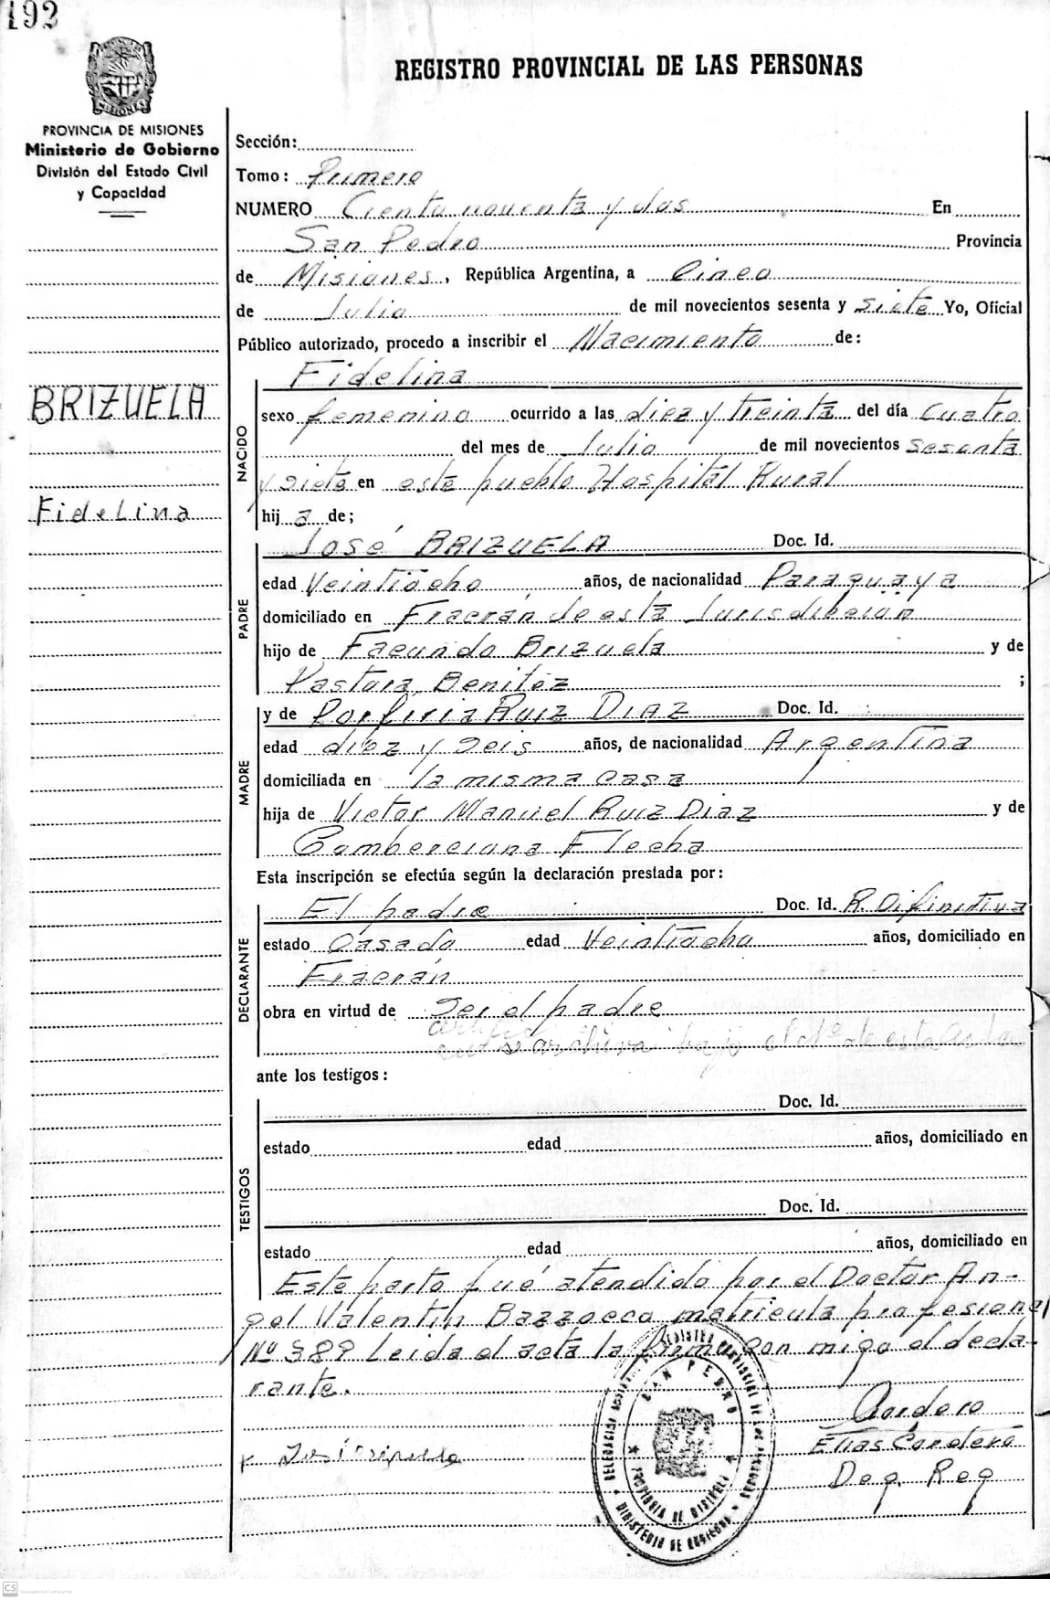 192
PROVINCIA DE MISIONES
Ministerio de Gobierno
División del Estado Civil
y Capacidad
BRIZUELA
Fidelina
REGISTRO PROVINCIAL DE LAS PERSONAS
Sección:
Tomo: Primero
NUMERO Ciento noventa y dos En
San Pedro Provincia
de Misiones, República Argentina, a Cinco
de Julio de mil novecientos sesenta y siete Yo, Oficial
Público autorizado, procedo a inscribir el Nacimiento de:
NACIDO
Fidelina
sexo femenino ocurrido a las diez y treinta del día Cuatro
del mes de Julio de mil novecientos sesenta
y siete en este pueblo Hospital Rural
hij a de;
PADRE
José BRIZUELA Doc. Id.
edad Veintiocho años, de nacionalidad Paraguaya
domiciliado en Fracrán de esta Jurisdicion
hijo de Facundo Brizuela y de
Pastora Benitez ;
MADRE
y de Porfiria Ruiz DIAZ Doc. Id.
edad diez y seis años, de nacionalidad Argentina
domiciliada en la misma casa
hija de Victor Manuel Ruiz Diaz y de
Flecha
Esta inscripción se efectúa según la declaración prestada por:
DECLARANTE
El padre Doc. Id. R. Difinitiva
estado Casado edad Veintiocho años, domiciliado en
Fracrán
obra en virtud de Ser el padre
se archiva bajo el Nº de esta
ante los testigos:
TESTIGOS
Doc. Id.
estado edad años, domiciliado en
Doc. Id.
estado edad años, domiciliado en
Este parto fué atendido por el Doctor An-
gel Valentin matricula profesional
Nº 389 Leida el acta la firma con migo el decla-
rante.
Cordero
Elias Cordero
Deg. Reg
SAN PEDRO
PROVINCIA DE MISIONES
MINISTERIO DE GOBIERNO
CS